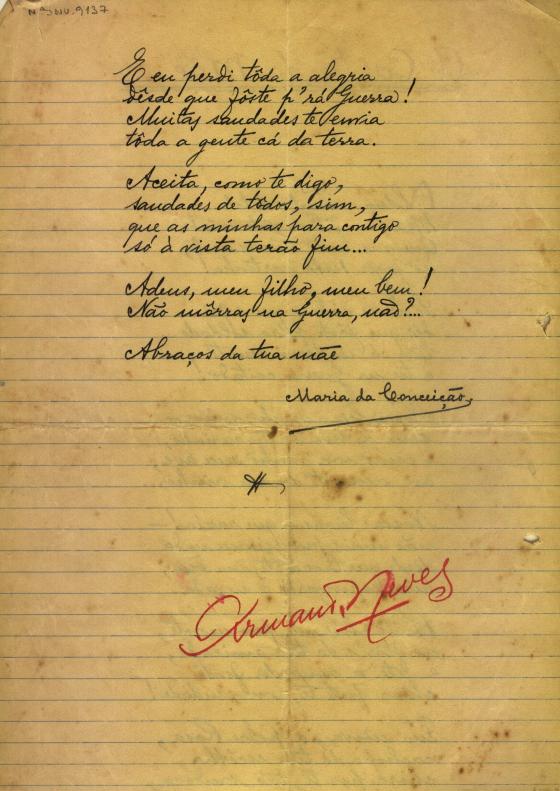 Nº Inv. 9137
E eu perdi tôda a alegria
dêsde que fôste p'rá Guerra!
Muitas saudades te envia
tôda a gente cá da terra.
Aceita, como te digo,
saudades de tôdos, sim,
que as minhas para contigo
só à vista terão fim...
Adeus, meu filho, meu bem!
Não môrras na Guerra, não?...
Abraços da tua mãe
Maria da Conceição
Armando Neves